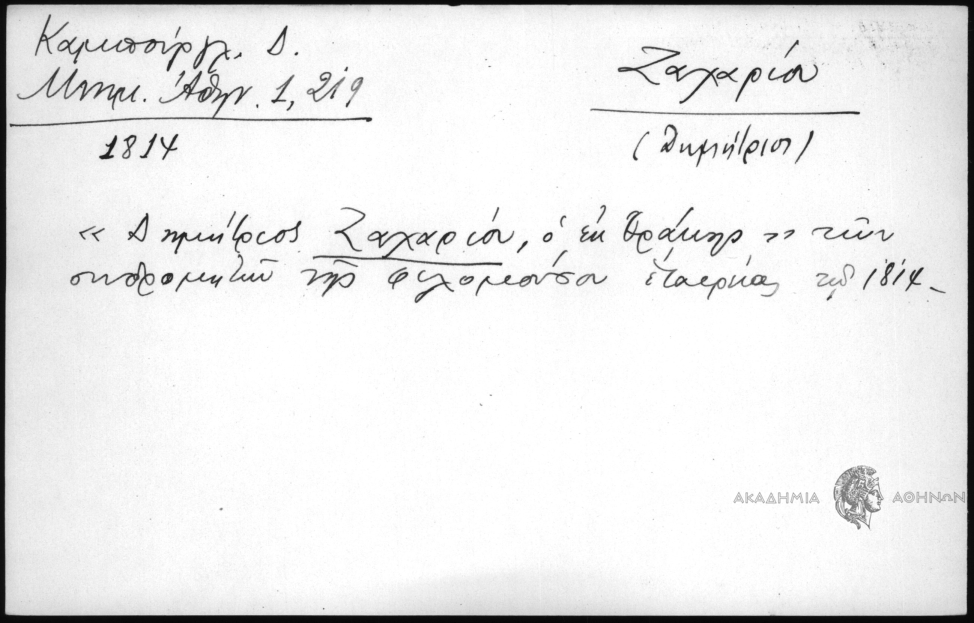 Καμπούργλ. Δ.
Μνημ. Ἀθην. 1, 219
1814
Ζαχαρίου
(Δημήτριος)
« Δημήτριος Ζαχαρίου, ὁ ἐκ Θράκης » τῶν
συνδρομητῶν τῆς φιλομούσου ἑταιρίας τοῦ 1814 -
ΑΚΑΔΗΜΙΑ ΑΘΗΝΩΝ